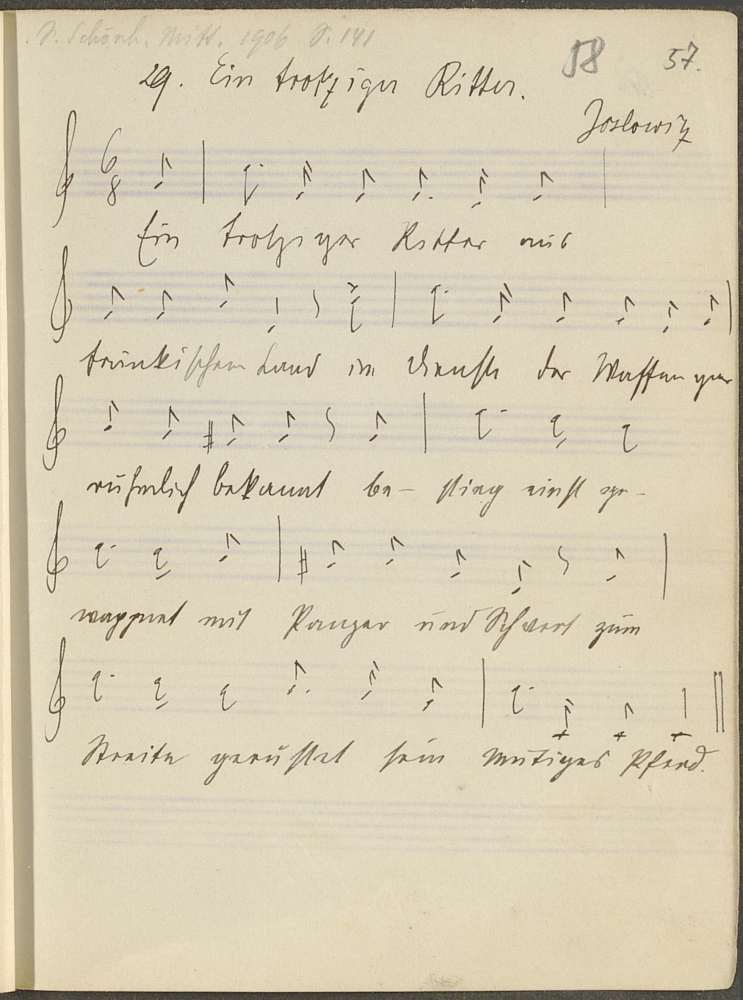 S. Schönh. Mitt. 1906 S. 141
58 57.
29. Ein trotziger Ritter.
Joslowitz
6
8
Ein trotziger Ritter aus
fränkischem Land im Dienste der Waffen gar
rühmlich bekannt be- stieg einst ge-
wappnet mit Panzer und Schwert zum
Streite gerüstet sein mutiges Pferd.